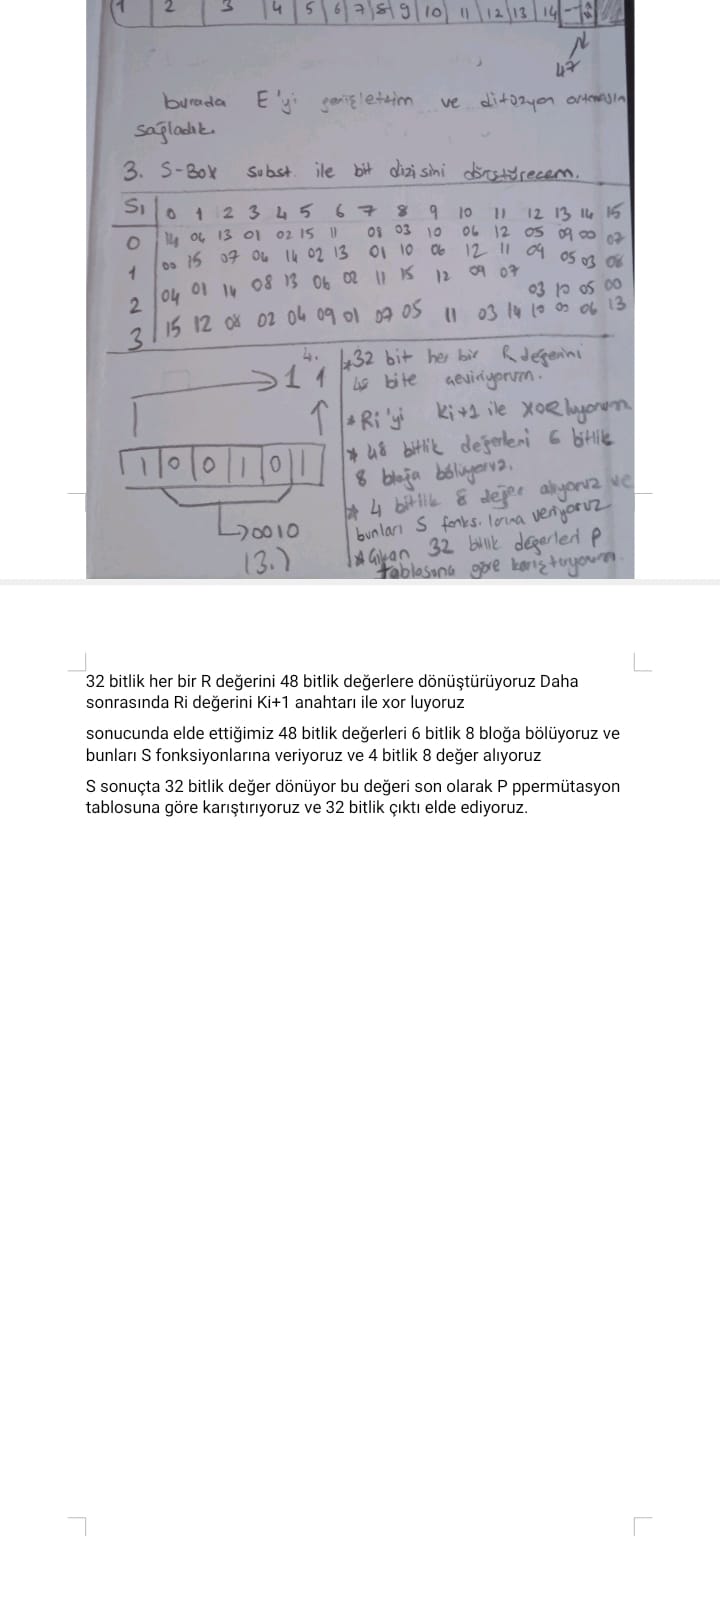 1 2 3 4 5 6 7 8 9 10 11 12 13 14
47
burada E'yi genişlettim ve difüzyon artmasın
sağladık.
3. S-Box Subst. ile bit dizisini
S1 0 1 2 3 4 5 6 7 8 9 10 11 12 13 14 15
0 14 04 13 01 02 15 11 08 03 10 06 12 05 09 00 07
1 00 15 07 04 14 02 13 01 10 06 12 11 09 05 03 08
2 04 01 14 08 13 06 02 11 15 12 09 07 03 10 05 00
3 15 12 08 02 04 09 01 07 05 11 03 14 10 00 06 13
4.
1 1
1 0 0 1 0 1
0010
(3.)
*32 bit her bir R değerini
48 bite çeviriyorum.
*Ri'yi Ki+1 ile XORluyorum
* 48 bitlik değerleri 6 bitlik
8 bloğa bölüyoruz.
* 4 bitlik 8 değer alıyoruz ve
bunları S fonks. larına veriyoruz
*Çıkan 32 bitlik değerleri P
tablosuna göre karıştırıyorum.
32 bitlik her bir R değerini 48 bitlik değerlere dönüştürüyoruz Daha
sonrasında Ri değerini Ki+1 anahtarı ile xor luyoruz
sonucunda elde ettiğimiz 48 bitlik değerleri 6 bitlik 8 bloğa bölüyoruz ve
bunları S fonksiyonlarına veriyoruz ve 4 bitlik 8 değer alıyoruz
S sonuçta 32 bitlik değer dönüyor bu değeri son olarak P ppermütasyon
tablosuna göre karıştırıyoruz ve 32 bitlik çıktı elde ediyoruz.